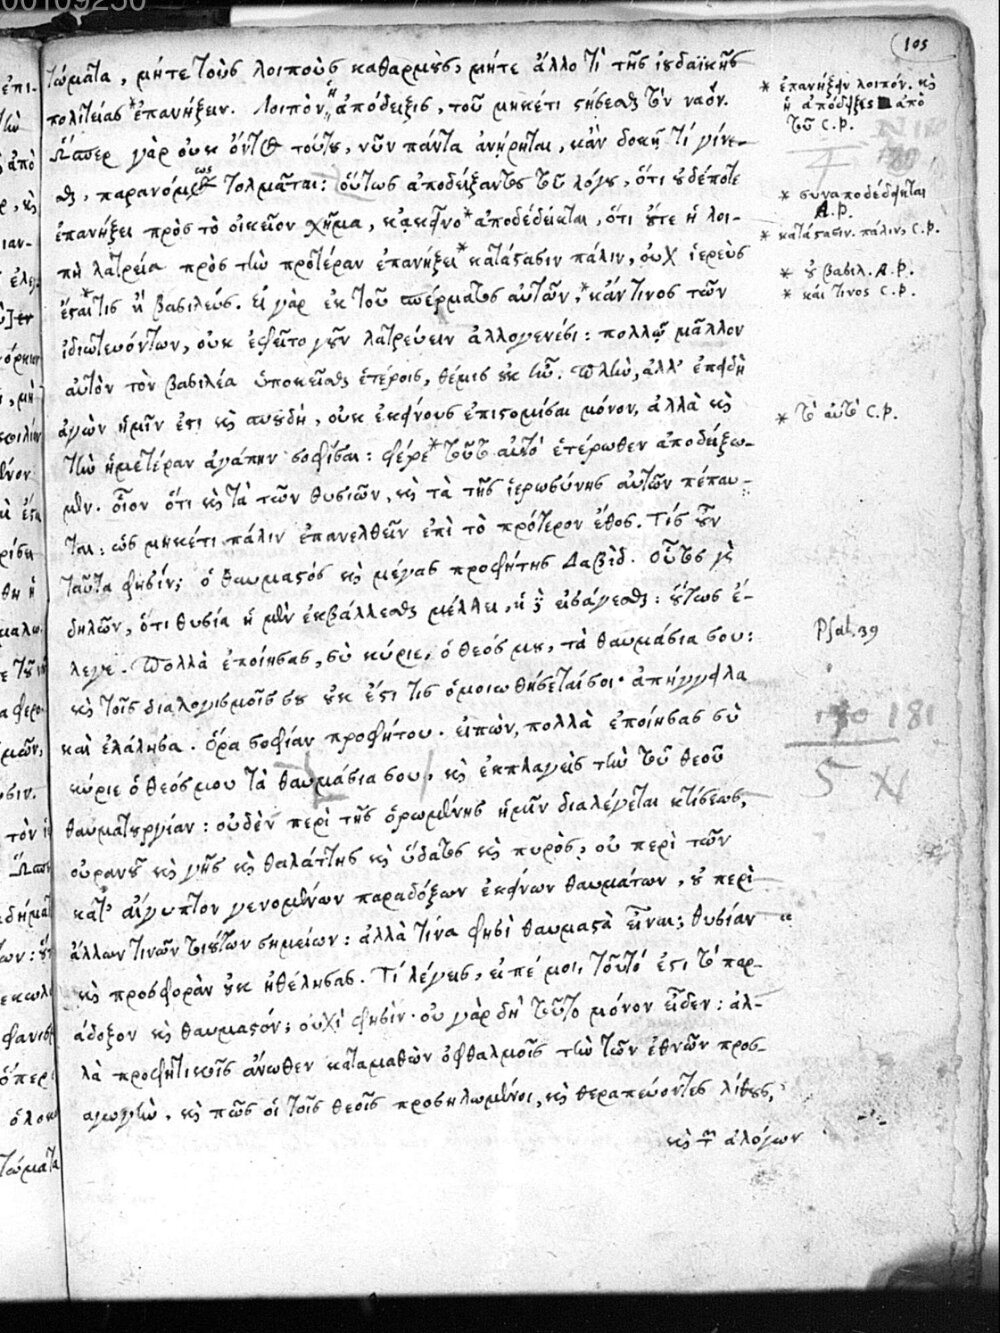 105
τώματα, μήτε τοὺς λοιποὺς καθαρμοὺς, μήτε ἄλλο τί τῆς ἰουδαϊκῆς
πολιτείας *ἐπανήξειν. λοιπὸν ἡ ἀπόδειξις, τοῦ μηκέτι στήσεσθαι τὸν ναόν.
Ὥσπερ γὰρ οὐκ ὄντος τούτου, νῦν πάντα ἀνήρηται, κἂν δοκῇ τί γίνε-
σθαι, παρανόμως τολμᾶται: οὕτως ἀποδείξαντος τοῦ λόγου, ὅτι οὐδέποτε
ἐπανήξει πρὸς τὸ οἰκεῖον σχῆμα, κἀκεῖνο *ἀποδέδεικται, ὅτι οὔτε ἡ λοι-
πὴ λατρεία πρὸς τὴν προτέραν ἐπανήξει *κατάστασιν πάλιν, οὐχ ἱερεὺς
ἔσται *τις ἢ βασιλεύς. εἰ γὰρ ἐκ τοῦ σπέρματος αὐτῶν, *κἄν τινος τῶν
ἰδιωτευόντων, οὐκ ἐφεῖτο γοῦν λατρεύειν ἀλλογενέσι: πολλῷ μᾶλλον
αὐτὸν τὸν βασιλέα ὑποκεῖσθαι ἑτέροις, θέμις οὐκ ἦν. πλὴν, ἀλλ' ἐπειδὴ
ἀγὼν ἡμῖν ἐστι καὶ σπουδὴ, οὐκ ἐκείνους ἐπιστομίσαι μόνον, ἀλλὰ καὶ
τὴν ἡμετέραν ἀγάπην σοφίσαι: φέρε *τοῦτ αὐτὸ ἑτέρωθεν ἀποδείξω-
μεν. οἷον ὅτι καὶ τὰ τῶν θυσιῶν, καὶ τὰ τῆς ἱερωσύνης αὐτῶν πέπαυ-
ται: ὡς μηκέτι πάλιν ἐπανελθεῖν ἐπὶ τὸ πρότερον ἔθος. Τίς οὖν
ταῦτα φησίν; ὁ θαυμαστὸς καὶ μέγας προφήτης Δαβὶδ. Οὗτος γὰρ
δηλῶν, ὅτι θυσία ἡ μὲν ἐκβάλλεσθαι μέλλει, ἡ δὲ εἰσάγεσθαι: οὕτως ἔ-
λεγε. Πολλὰ ἐποίησας, σὺ κύριε, ὁ θεός μου, τὰ θαυμάσια σου:
καὶ τοῖς διαλογισμοῖς σου οὐκ ἔστι τις ὁμοιωθήσεταί σοι· ἀπήγγειλα
καὶ ἐλάλησα. Ὅρα σοφίαν προφήτου. εἰπὼν, πολλὰ ἐποίησας σὺ
κύριε ὁ θεός μου τὰ θαυμάσια σου, καὶ ἐκπλαγεὶς τὴν τοῦ θεοῦ
θαυματουργίαν: οὐδὲν περὶ τῆς ὁρωμένης ἡμῖν διαλέγεται κτίσεως,
οὐρανοῦ καὶ γῆς καὶ θαλάττης καὶ ὕδατος καὶ πυρὸς, οὐ περὶ τῶν
κατ' αἴγυπτον γενομένων παραδόξων ἐκείνων θαυμάτων, οὐ περὶ
ἄλλων τινῶν τοιούτων σημείων: ἀλλὰ τίνα φησὶ θαυμαστὰ εἶναι; θυσίαν
καὶ προσφορὰν οὐκ ἠθέλησας. Τί λέγεις, εἰπέ μοι, τοῦτό ἐστι τὸ παρ-
άδοξον καὶ θαυμαστόν; οὐχὶ φησίν· οὐ γὰρ δὴ τοῦτο μόνον εἶδεν: ἀλ-
λὰ προφητικοῖς ἄνωθεν καταμαθὼν ὀφθαλμοῖς τὴν τῶν ἐθνῶν προσ-
αγωγὴν, καὶ πῶς οἱ τοῖς θεοῖς προσηλωμένοι, καὶ θεραπεύοντες λίθους,
καὶ τῶν ἀλόγων
* ἐπανήξειν λοιπόν. καὶ
ἡ ἀπόδειξις ἀπὸ
τοῦ C.P.
* συναποδέδεικται
A.P.
* κατάστασιν. πάλιν, C.P.
* οὐ βασιλ. A.P.
* καί τινος C.P.
* τὸ αὐτὸ C.P.
Psal. 39
181
5 N